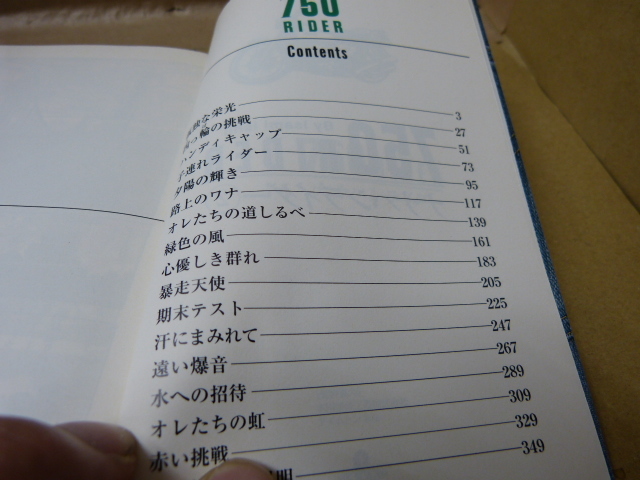 750
RIDER
Contents
な栄光 3
輪の挑戦 27
ハンディキャップ 51
子連れライダー 73
夕陽の輝き 95
路上のワナ 117
オレたちの道しるべ 139
緑色の風 161
心優しき群れ 183
暴走天使 205
期末テスト 225
汗にまみれて 247
遠い爆音 267
水への招待 289
オレたちの虹 309
赤い挑戦 329
明 349